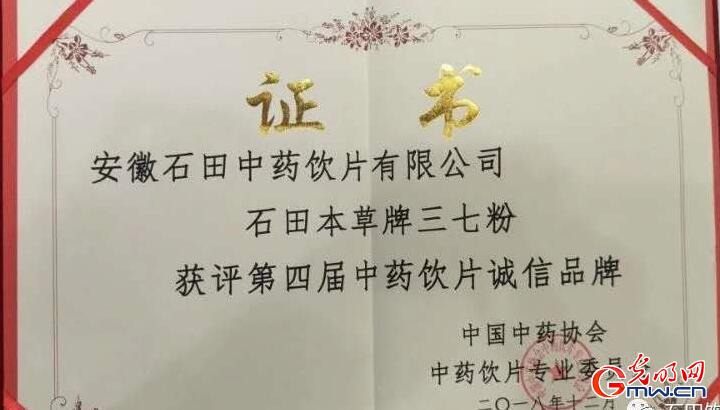 证书
安徽石田中药饮片有限公司
石田本草牌三七粉
获评第四届中药饮片诚信品牌
中国中药协会
中药饮片专业委员
二〇一八年十二月
光明网